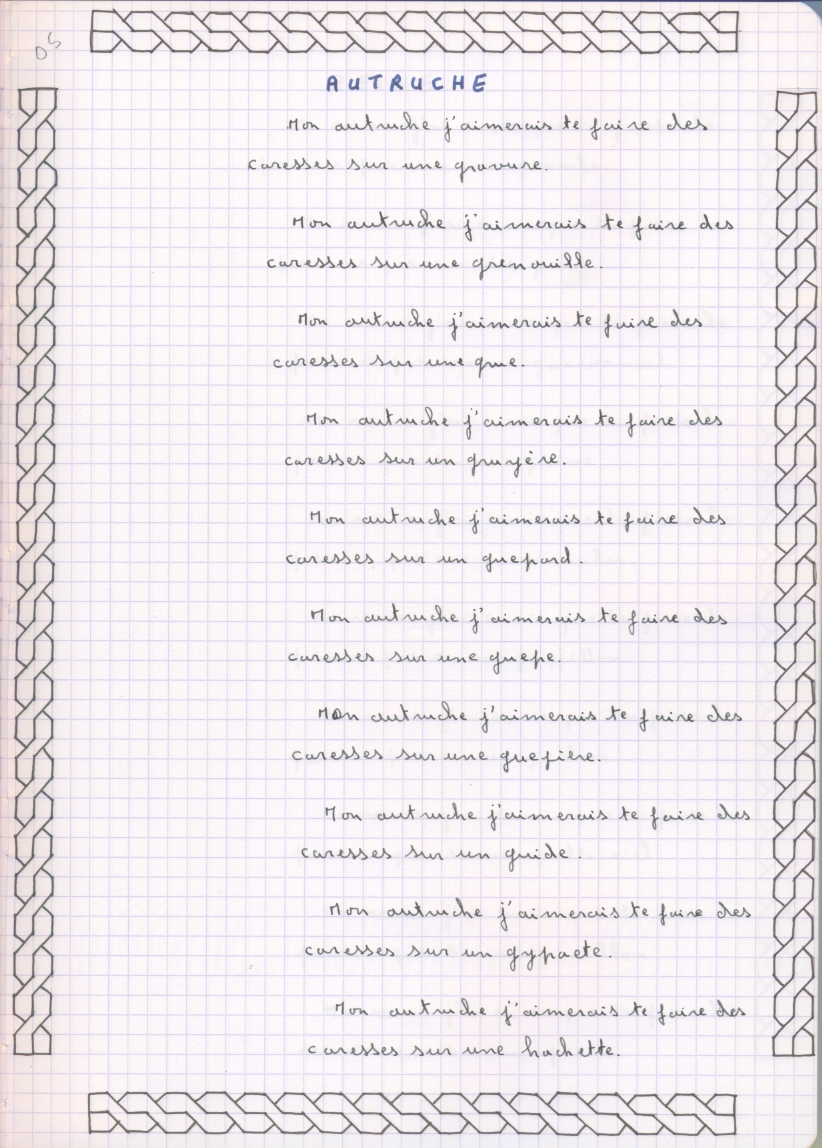 AUTRUCHE
Mon autruche j'aimerais te faire des
caresses sur une gravure.
Mon autruche j'aimerais te faire des
caresses sur une grenouille.
Mon autruche j'aimerais te faire des
caresses sur une grue.
Mon autruche j'aimerais te faire des
caresses sur un gruyère.
Mon autruche j'aimerais te faire des
caresses sur un guepard.
Mon autruche j'aimerais te faire des
caresses sur une guepe.
Mon autruche j'aimerais te faire des
caresses sur une guepiere.
Mon autruche j'aimerais te faire des
caresses sur un guide.
Mon autruche j'aimerais te faire des
caresses sur un gypaete.
Mon autruche j'aimerais te faire des
caresses sur une hachette.